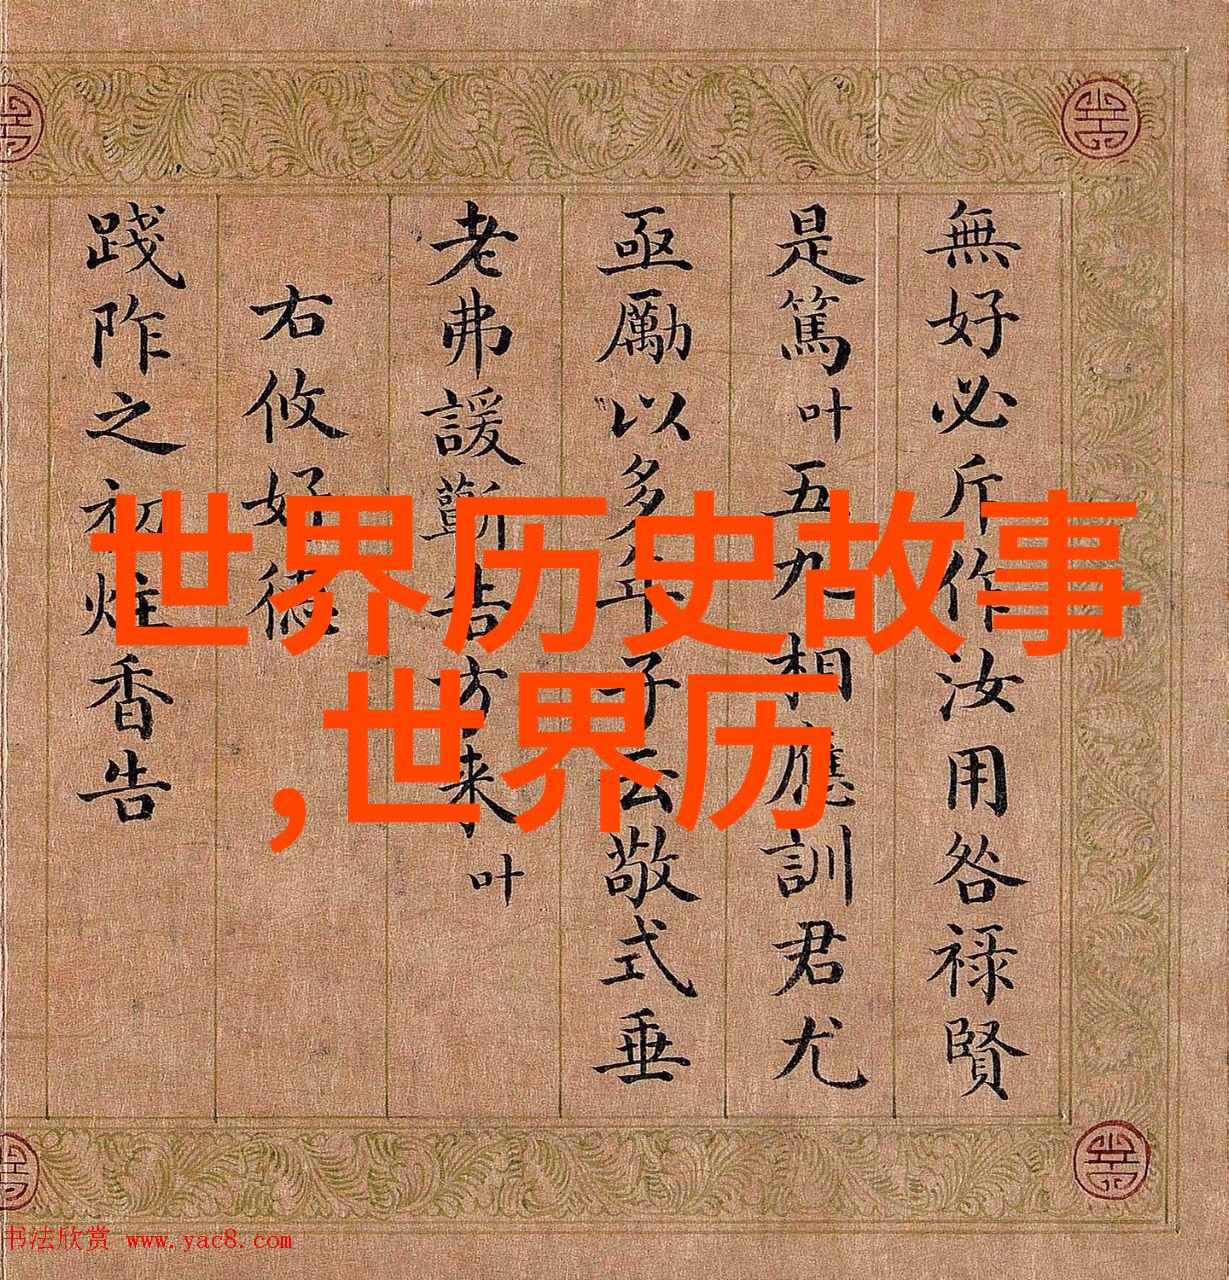 無好必斤作汝用咎祿賢
是篤叶五九相應訓君尤
亟勵以多年子云敬式垂
老弗諼蘄告方来叶
右攸好德
踐阼之初炷香告
世界历史故事
,世界历
书法欣赏 www.yac8.com